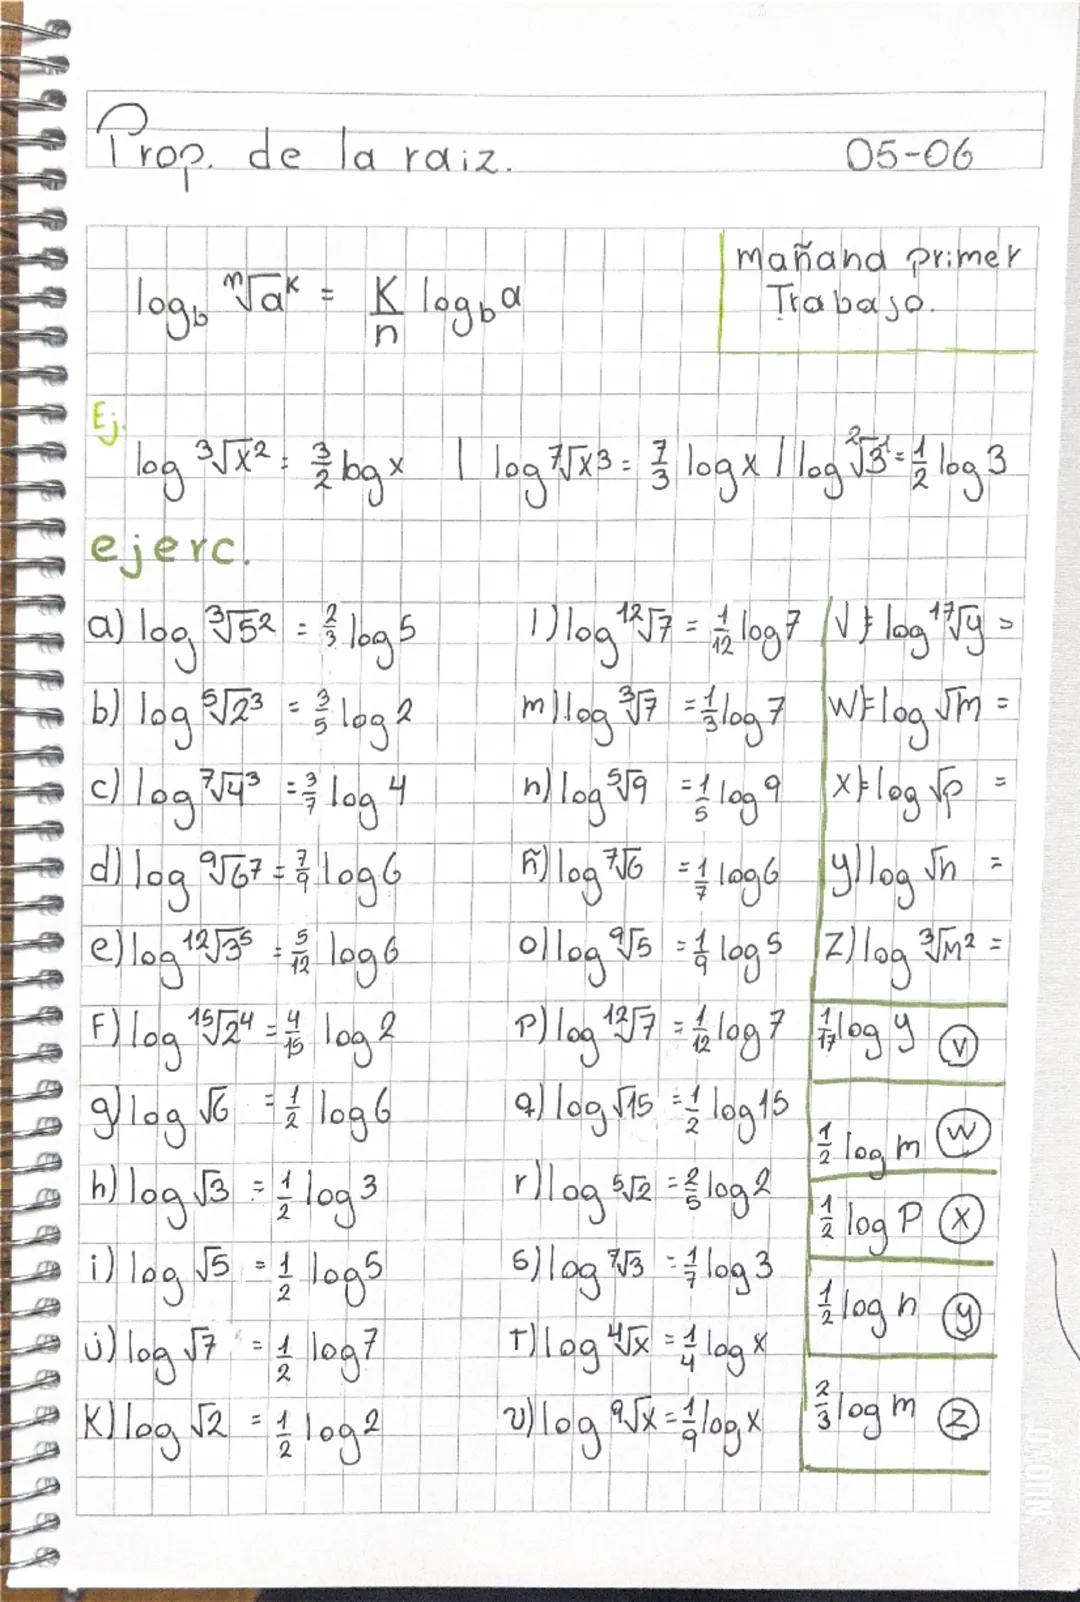 Prop. de la raiz. 05-06
mañana primer
Trabajo.
log_b ⁿ√a^K = K/n log_b a
Ej.
log ³√x² = 3/2 log x | log ⁷√x3 = 7/3 log x | log ²√3¹ = 1/2 log 3
ejerc.
a) log ³√5² = 2/3 log 5
b) log ⁵√2³ = 3/5 log 2
c) log ⁷√4³ = 3/7 log 4
d) log ⁹√6⁷ = 7/9 log 6
e) log ¹²√3⁵ = 5/12 log 6
F) log ¹⁵√2⁴ = 4/15 log 2
g) log √6 = 1/2 log 6
h) log √3 = 1/2 log 3
i) log √5 = 1/2 log 5
j) log √7 = 1/2 log 7
K) log √2 = 1/2 log 2
l) log ¹²√7 = 1/12 log 7
m) log ³√7 = 1/3 log 7
n) log ⁵√9 = 1/5 log 9
ñ) log ⁷√6 = 1/7 log 6
o) log ⁹√5 = 1/9 log 5
P) log ¹²√7 = 1/12 log 7
q) log √15 = 1/2 log 15
r) log ⁵√2 = 2/5 log 2
s) log ⁷√3 = 1/7 log 3
T) log ⁴√x = 1/4 log x
U) log ⁹√x = 1/9 log x
V) = log ¹⁷√y =
W) = log √m =
X) = log √p =
y) log √n =
Z) log ³√m² =
1/17 log y V
1/2 log m W
1/2 log P X
1/2 log n y
2/3 log m Z